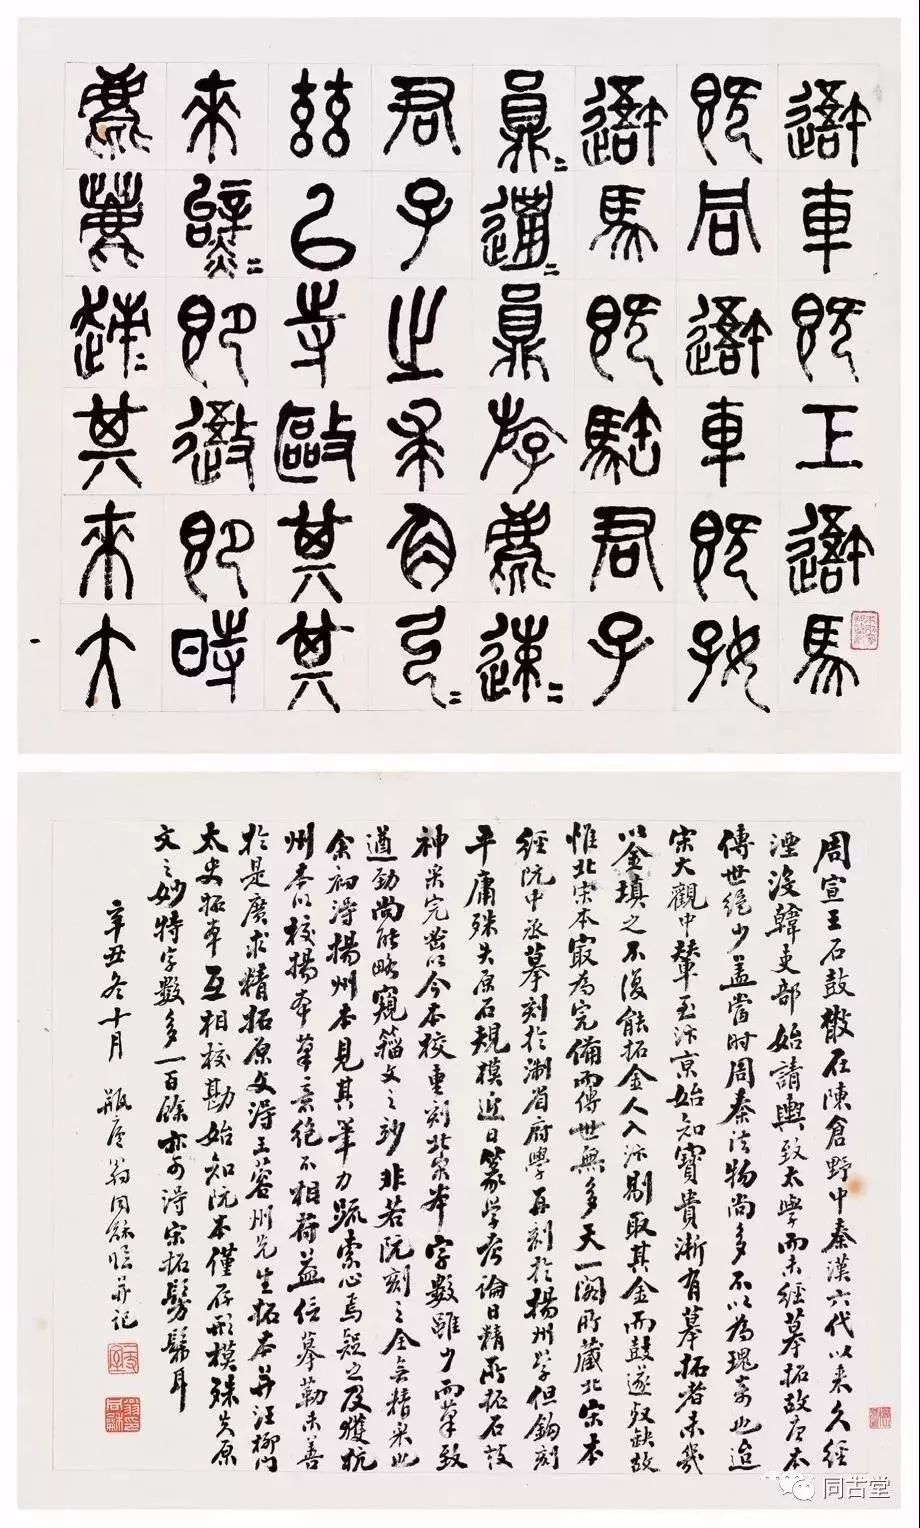 吾車既工吾馬
既同吾車既好
吾馬既駐君子
員=邋=員斿麀=速=
君子之求角弓=
茲以寺毆其其
來趩=即禦即時
麀鹿速=其來大
周宣王石鼓散在陳倉野中秦漢六代以來久經
湮沒韓吏部始請輿致太學而未經摹拓故唐本
傳世絕少蓋當時周秦法物尚多不以為瑰奇也迨
宋大觀中輦至汴京始知寶貴漸有摹拓者未幾
以金填之不復能拓金人入汴剔取其金而鼓遂殘缺故
惟北宋本最為完備而傳世無多天一閣所藏北宋本
經阮中丞摹刻於淛省府學再刻於揚州學但鉤刻
平庸殊失原石規模近日篆學考論日精所拓石鼓
神采完密以今本校重刻北宋本字數雖少而筆致
遒勁尚能略窺籀文之妙非若阮刻之全無精采也
余初得揚州本見其筆力疏索心焉疑之及獲杭
州本以校揚本筆意絕不相符益信摹勒未善
於是廣求精拓原文得王蓉州先生拓本并汪柳門
太史拓本互相校勘始知阮本僅存形模殊失原
文之妙特字數多一百餘亦可得宋拓髣髴耳
辛丑冬十月 瓶廬翁同龢臨并記
同古堂